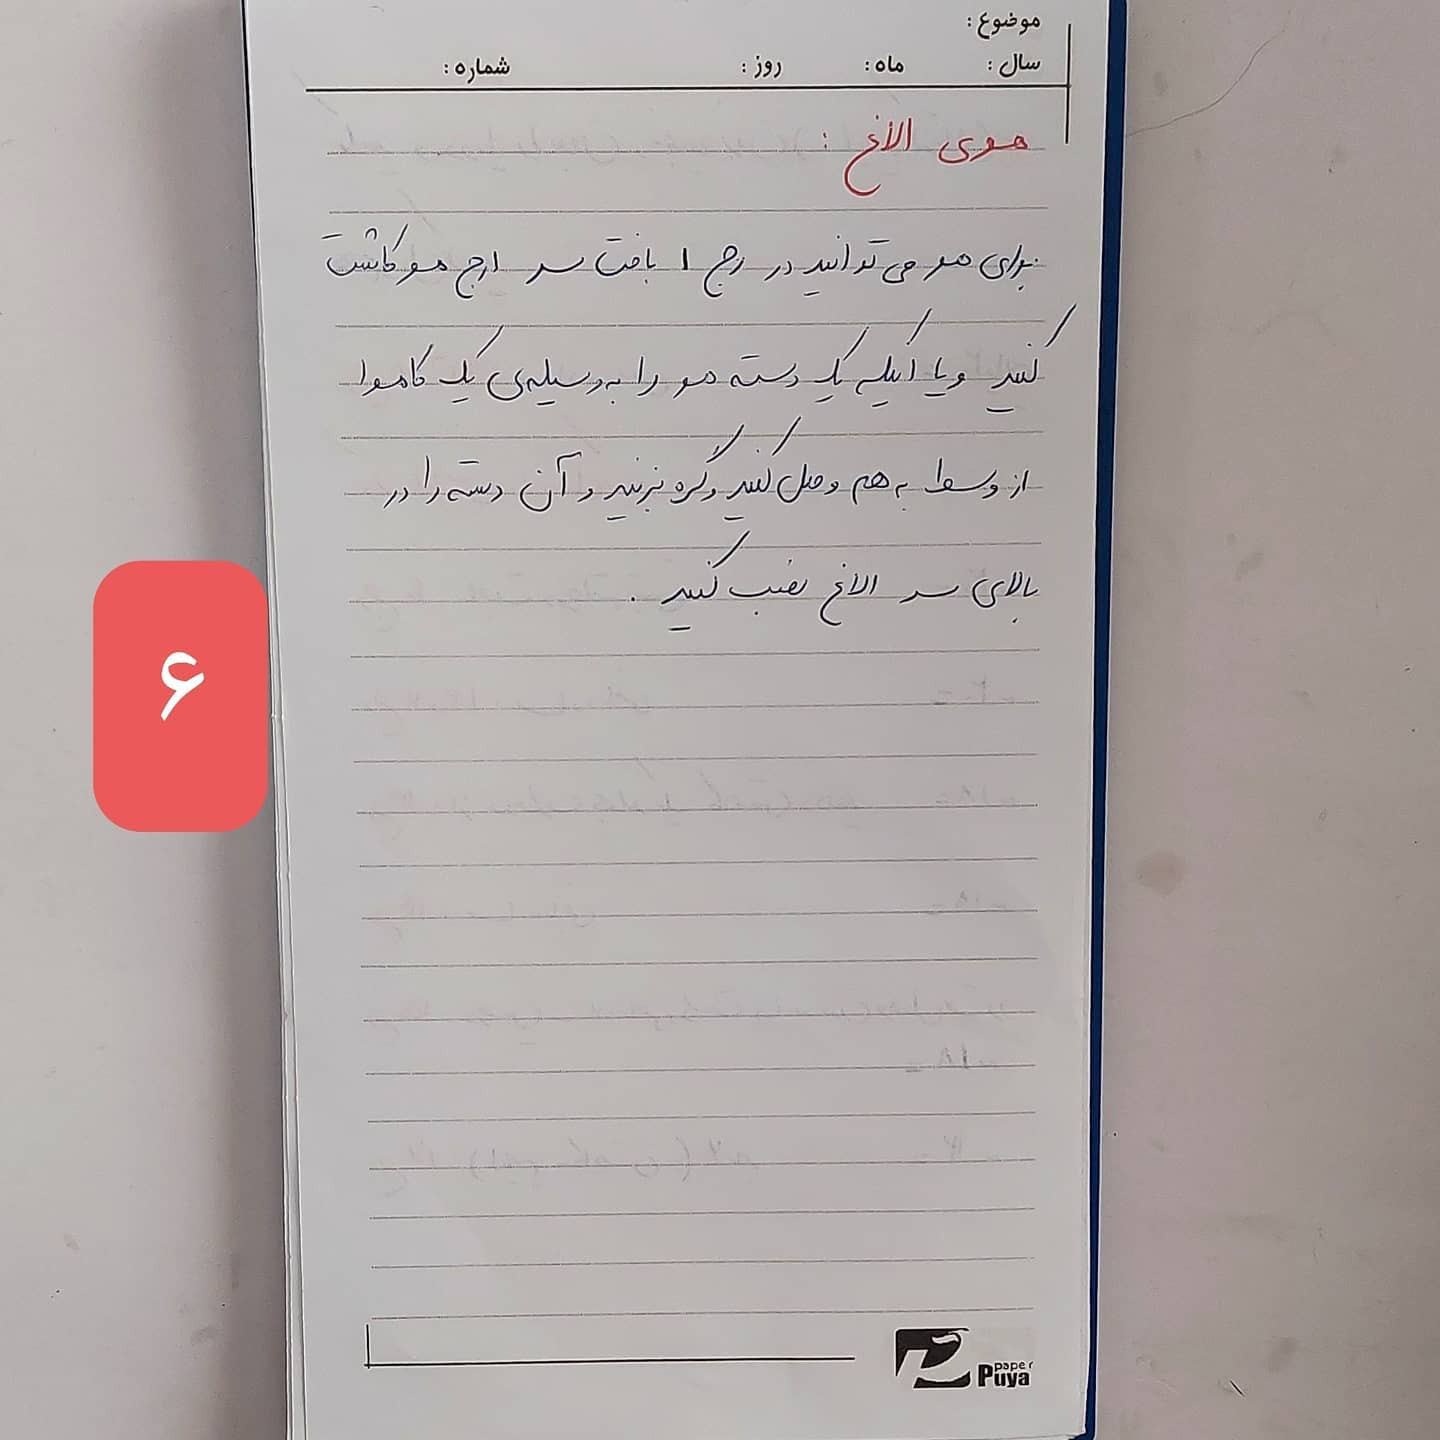 موضوع :
سال :    ماه :    روز :    شماره :
موی الاغ :
برای مو می توانید در رج ۱ بافت سر از رج مو کاشت
کنید و یا اینکه یک دسته مو را به وسیله‌ی یک کاموا
از وسط به هم وصل کنید و گره بزنید و آن دسته را در
بالای سر الاغ نصب کنید .
۶
paper
Puya